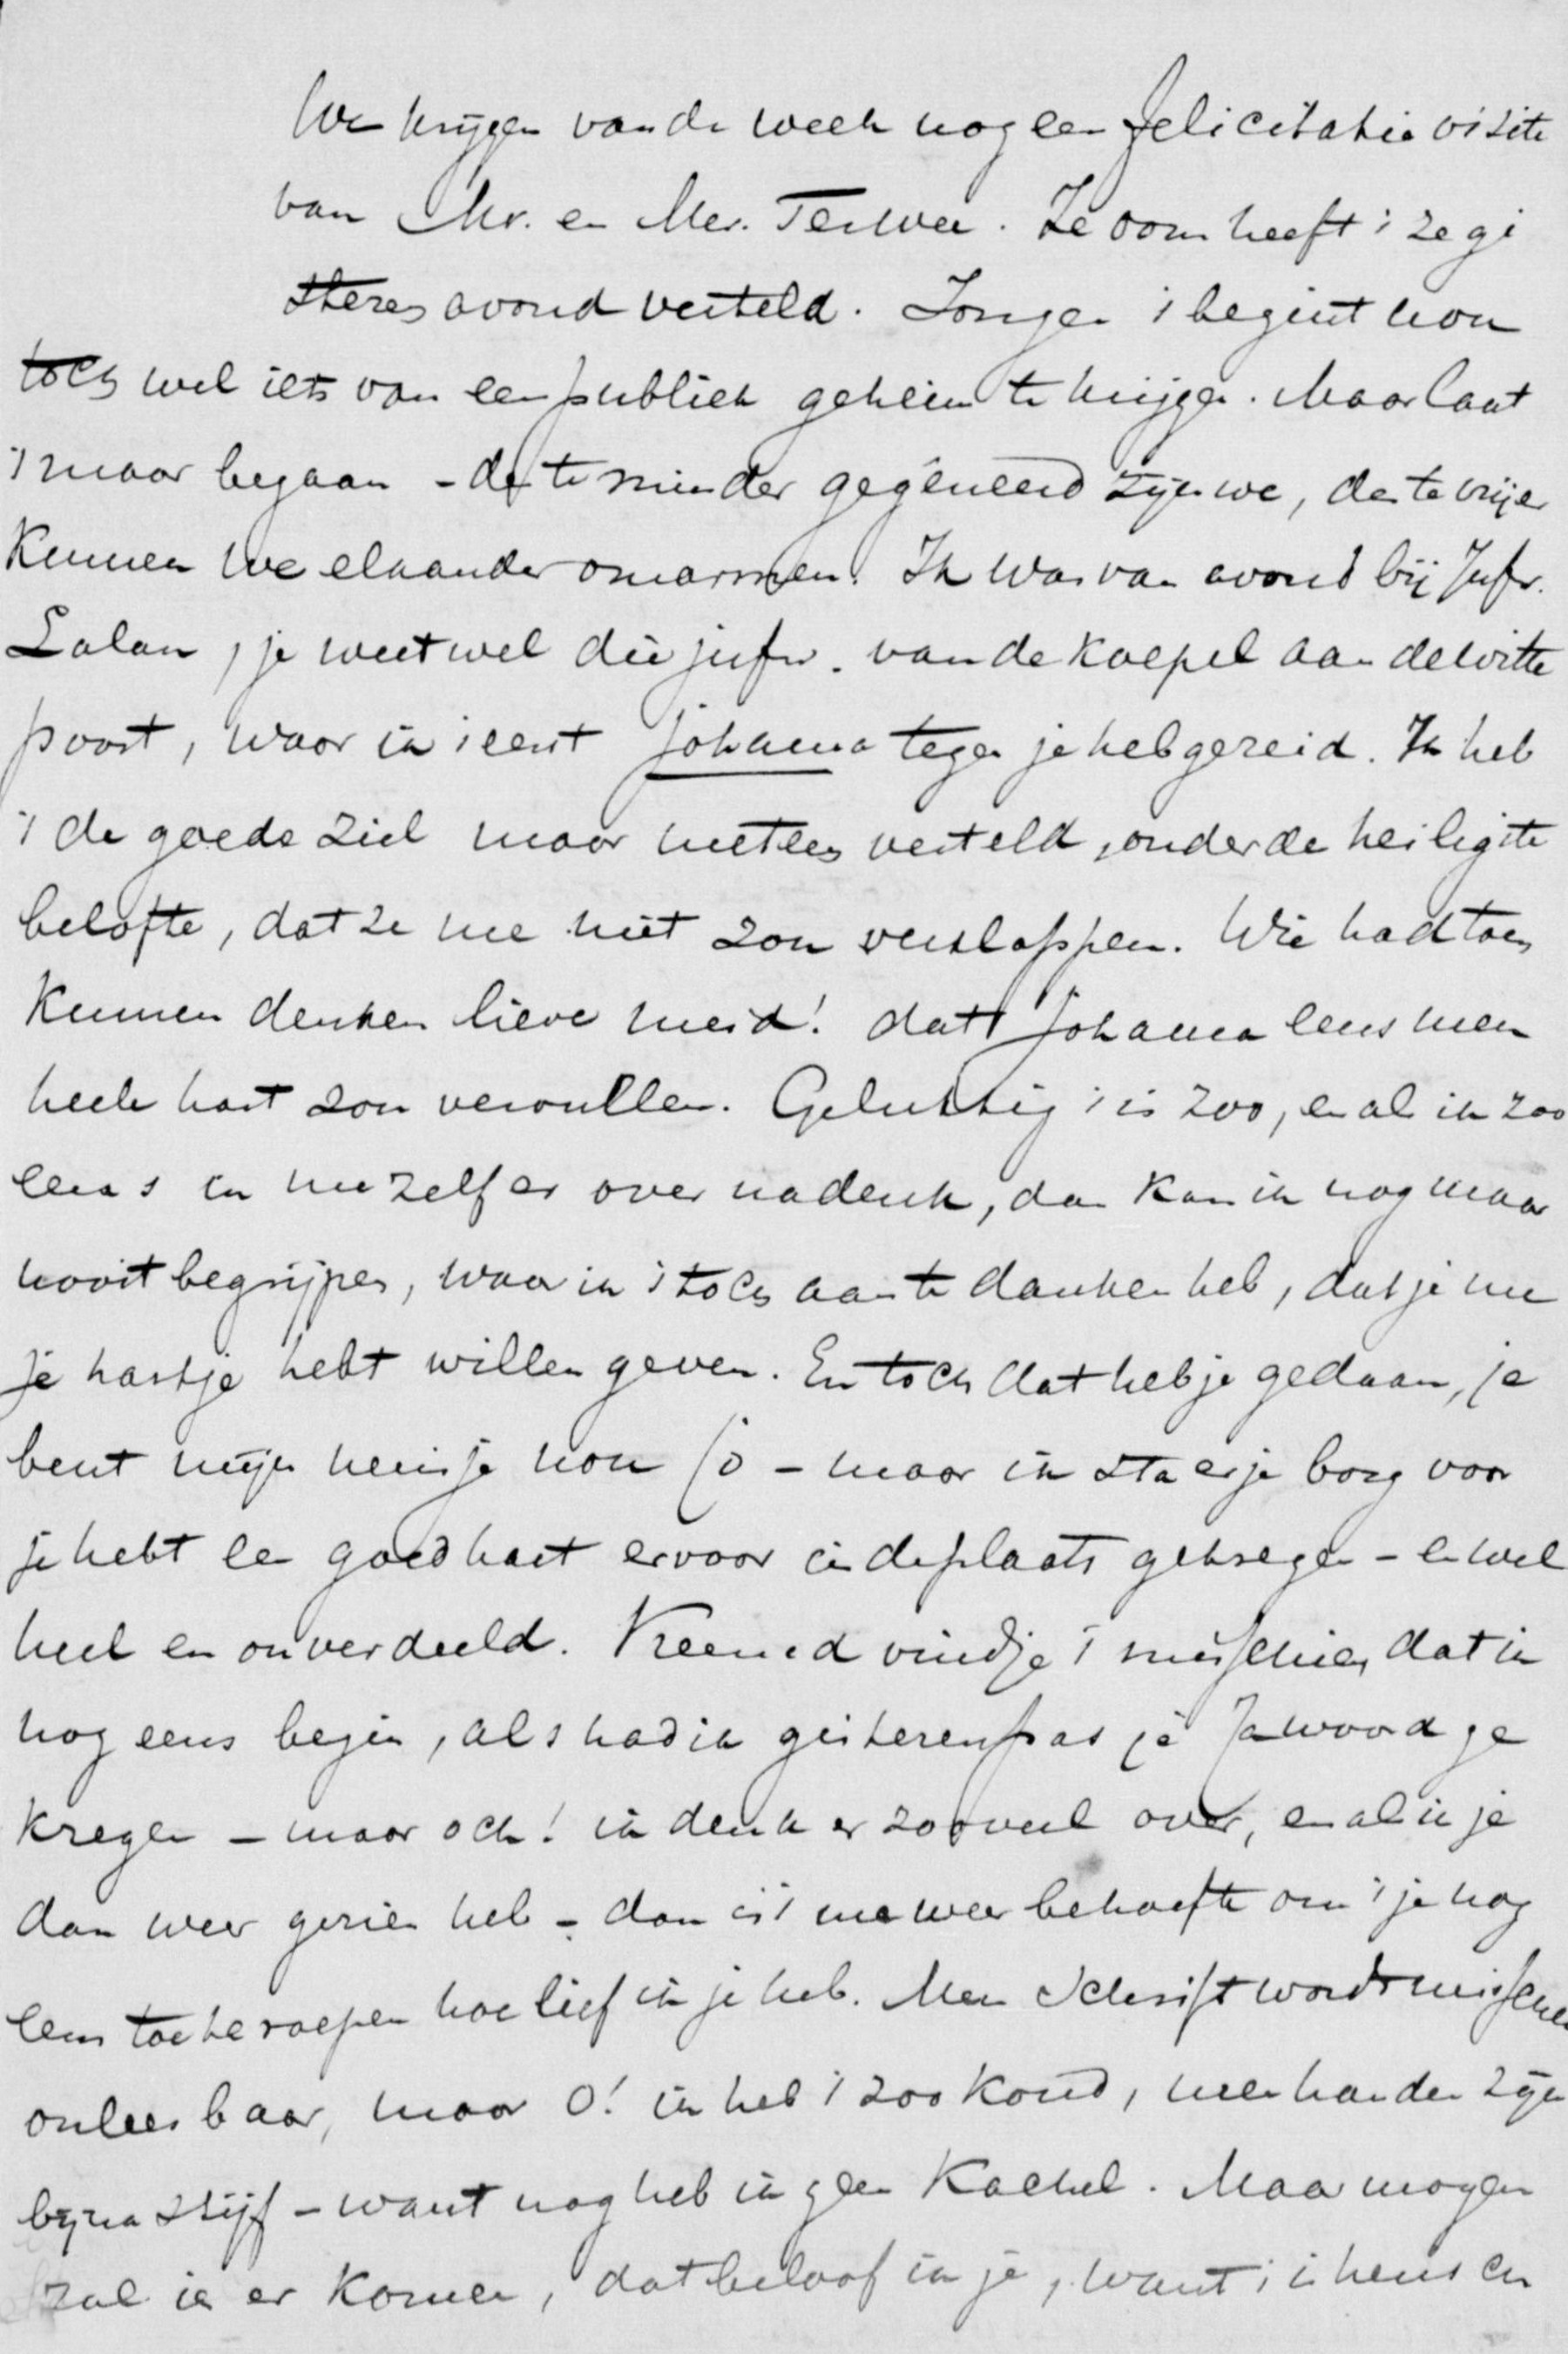 We krijgen van de week nog een felicitatie visite
van Mr. en Mev. Terwee. Je oom heeft 't ze gi
steren avond verteld. Jongen 't begint nou
toch wel iets van een publiek geheim te krijgen. Maar laat
't maar begaan – des te minder gegêneerd zijn we, des te vrijer
Kunnen we elkaander omarmen. Ik was van avond bij Jufr.
Lalau, je weet wel die jufr. van de Koepel aan de witte
poort, waar ik 't eerst Johanna tegen je heb gezeid. Ik heb
't de goede ziel maar meteen verteld, onder de heiligste
belofte, dat ze me niet zou verslappen. Wie had toen
Kunnen denken lieve meid! dat Johanna eens men
heele hart zou vervullen. Gelukkig 't is zoo, en als ik zoo
eens in me zelf er over nadenk, dan kan ik nog maar
nooit begrijpen, waar ik 't toch aan te danken heb, dat je me
je hartje hebt willen geven. En toch dat heb je gedaan, je
bent mijn meisje nou Jo – maar ik sta er je borg voor
je hebt een goed hart ervoor in de plaats gekregen – en wel
heel en onverdeeld. Vreemd vind je 't misschien, dat ik
nog eens begin, als had ik gisteren pas je Jawoord ge
kregen – maar och! ik denk er zooveel over, en als ik je
dan weer gezien heb – dan is 't me weer behoefte om 't je nog
eens toe te roepen hoe lief ik je heb. Men schrift wordt misschien
onleesbaar, maar O! ik heb 't zoo koud, men handen zijn
bijna stijf – want nog heb ik geen Kachel. Maar morgen
zal ie er komen, dat beloof ik je, want 't is heusch